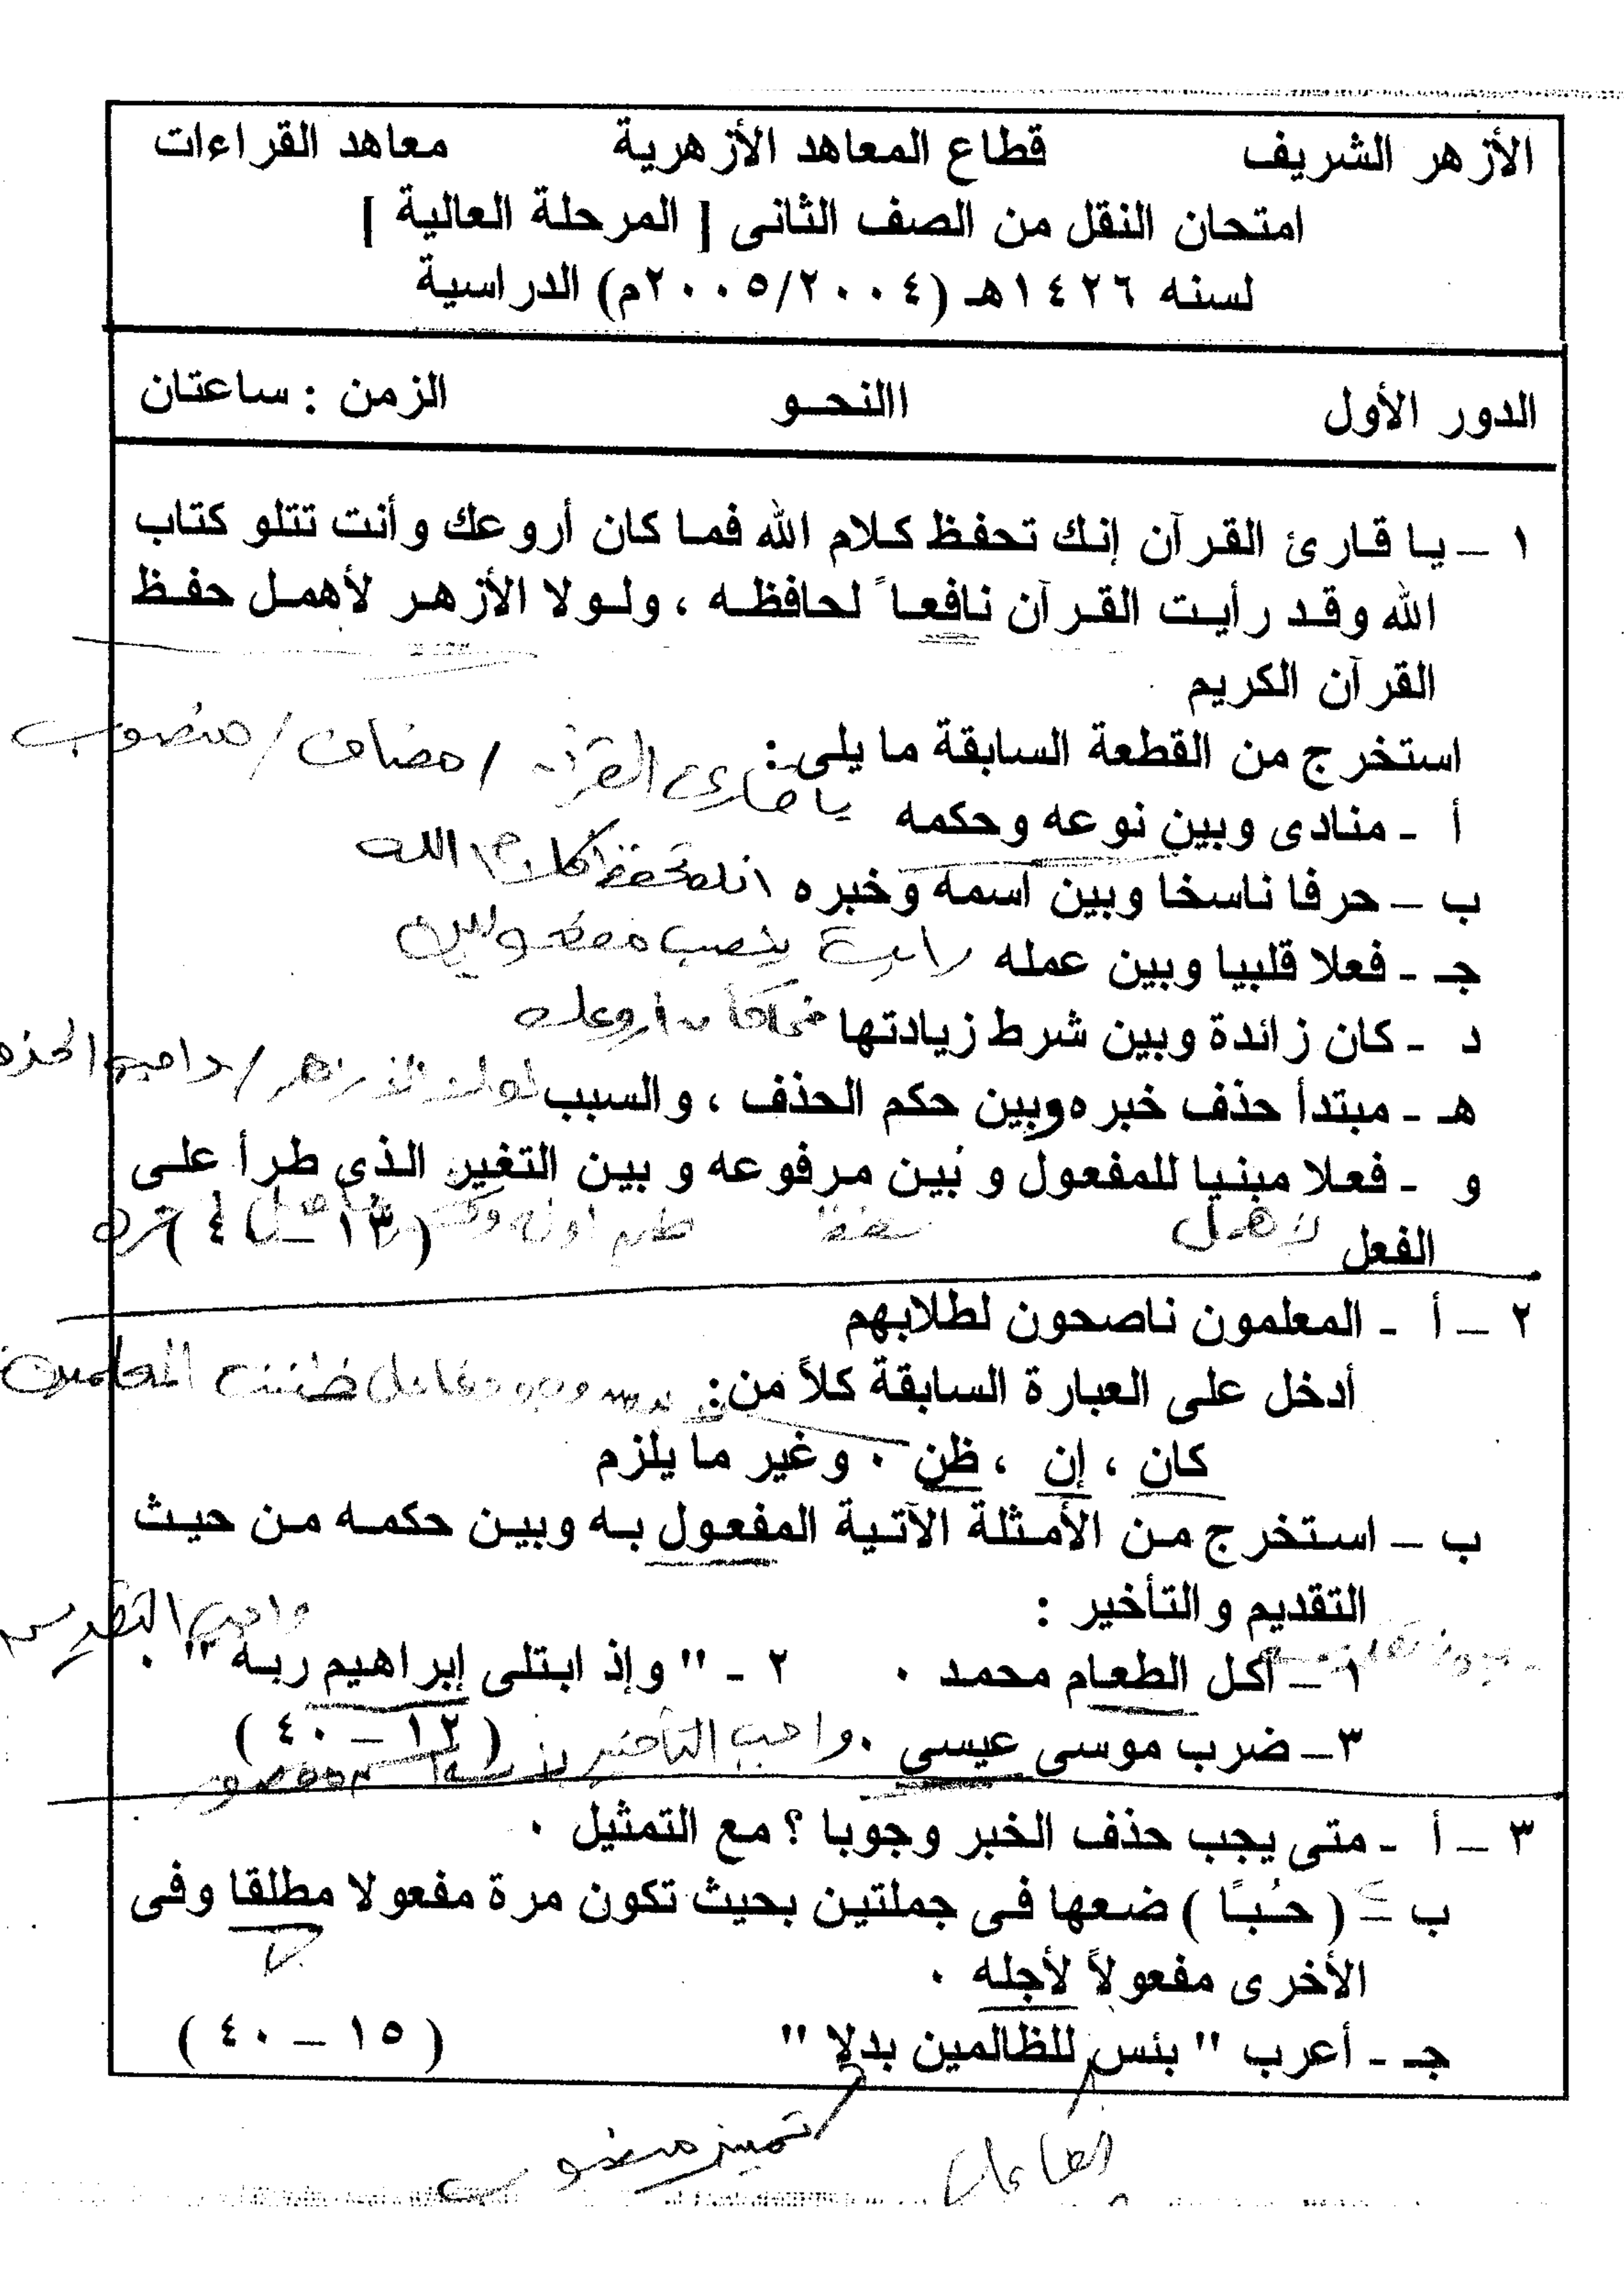 الأزهر الشريف قطاع المعاهد الأزهرية معاهد القراءات
امتحان النقل من الصف الثانى [ المرحلة العالية ]
لسنه ١٤٢٦هـ (٢٠٠٥/٢٠٠٤م) الدراسية
الدور الأول االنحـو الزمن : ساعتان
١ – يا قارئ القرآن إنك تحفظ كلام الله فما كان أروعك وأنت تتلو كتاب
الله وقد رأيت القرآن نافعاً لحافظه ، ولولا الأزهر لأهمل حفظ
القرآن الكريم
استخرج من القطعة السابقة ما يلى :
يا قارئ القرآن / مضاف / منصوب
أ - منادى وبين نوعه وحكمه
ب – حرفا ناسخا وبين اسمه وخبره انك تحفظ كلام الله
جـ - فعلا قلبيا وبين عمله رأيت ينصب مفعولين
د - كان زائدة وبين شرط زيادتها فما كان أروعك
هـ - مبتدأ حذف خبره وبين حكم الحذف ، والسبب لولا الأزهر / واجب الحذف
و - فعلا مبنيا للمفعول و بين مرفوعه و بين التغير الذى طرأ على
الفعل لأهمل حفظ ضم أوله (١٣ – ٤٠)
٢ – أ - المعلمون ناصحون لطلابهم
أدخل على العبارة السابقة كلاً من : ظننت المعلمين
كان ، إن ، ظن . وغير ما يلزم
ب – استخرج من الأمثلة الآتية المفعول به وبين حكمه من حيث
التقديم والتأخير : واجب التقديم
١ – أكل الطعام محمد . ٢ - " وإذ ابتلى إبراهيم ربه " .
٣ – ضرب موسى عيسى . واجب التأخير (١٢ – ٤٠)
٣ – أ - متى يجب حذف الخبر وجوبا ؟ مع التمثيل .
ب – ( حُبًا ) ضعها فى جملتين بحيث تكون مرة مفعولا مطلقا وفى
الأخرى مفعولاً لأجله .
جـ - أعرب " بئس للظالمين بدلا " (١٥ – ٤٠)
الفاعل تمييز منصوب